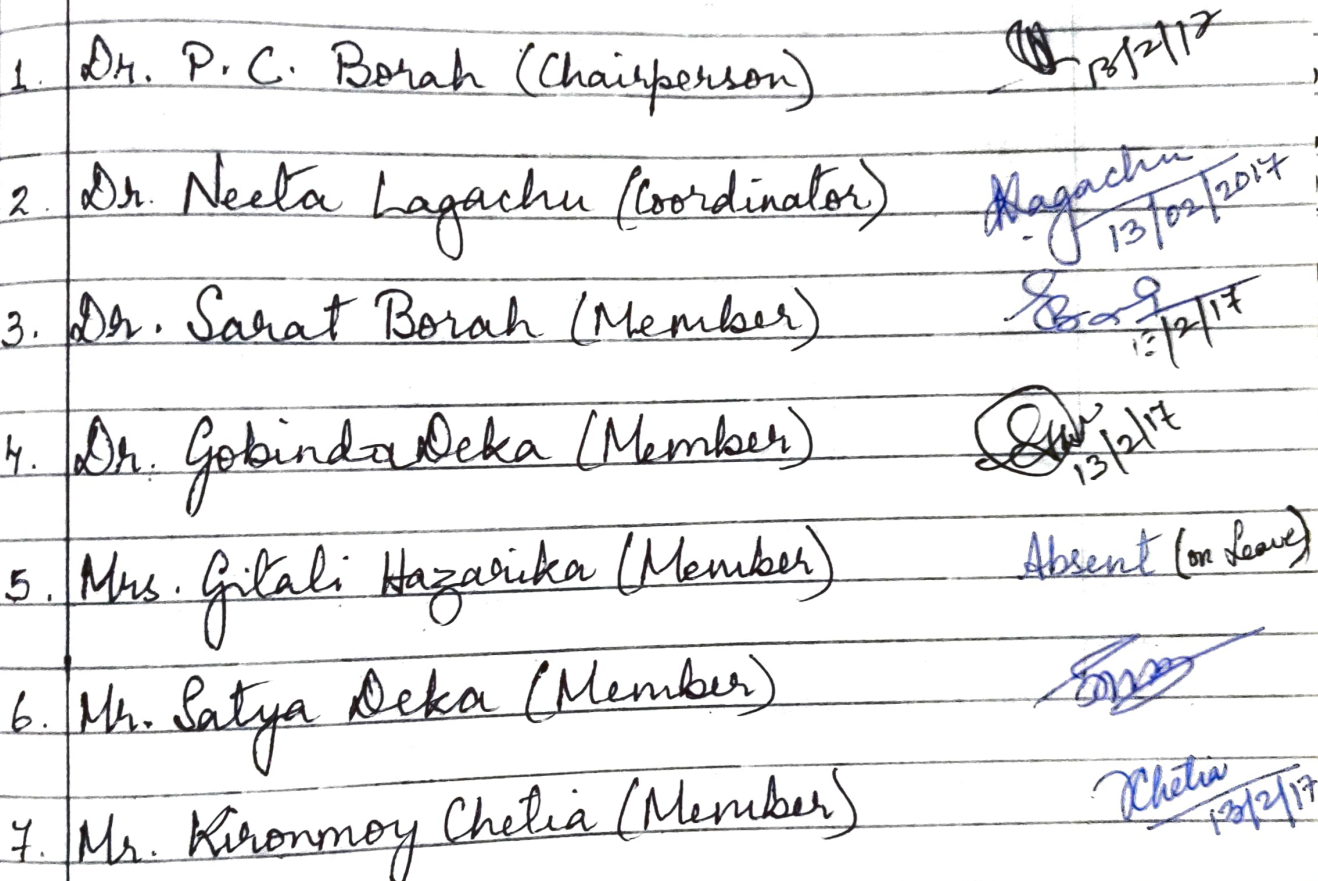 1. Dr. P. C. Borah (Chairperson) 13/2/17
2. Dr. Neeta Lagachu (Coordinator) NLagachu 13/02/2017
3. Dr. Sarat Borah (Member) 13/2/17
4. Dr. Gobinda Deka (Member) 13/2/17
5. Mrs. Gitali Hazarika (Member) Absent (on Leave)
6. Mr. Satya Deka (Member)
7. Mr. Kironmoy Chetia (Member) KChetia 13/2/17